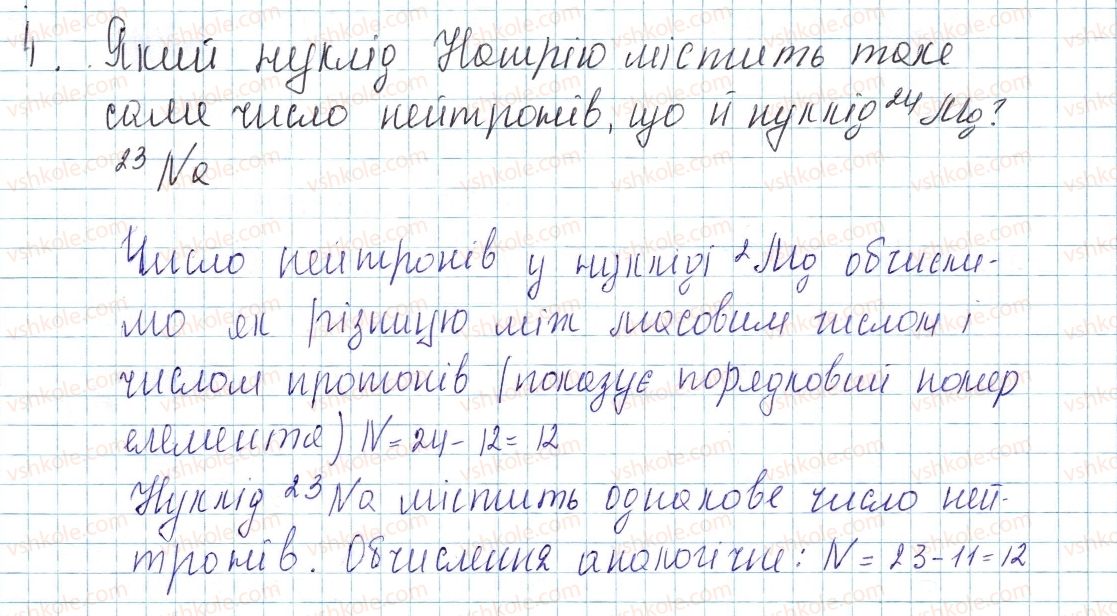 4. Який нуклід Натрію містить таке
саме число нейтронів, що й нуклід ²⁴Mg?
²³Na
Число нейтронів у нукліді ²Mg обчисли-
мо як різницю між масовим числом і
числом протонів (показує порядковий номер
елемента) N = 24 - 12 = 12
Нуклід ²³Na містить однакове число ней-
тронів. Обчислення аналогічне: N = 23 - 11 = 12